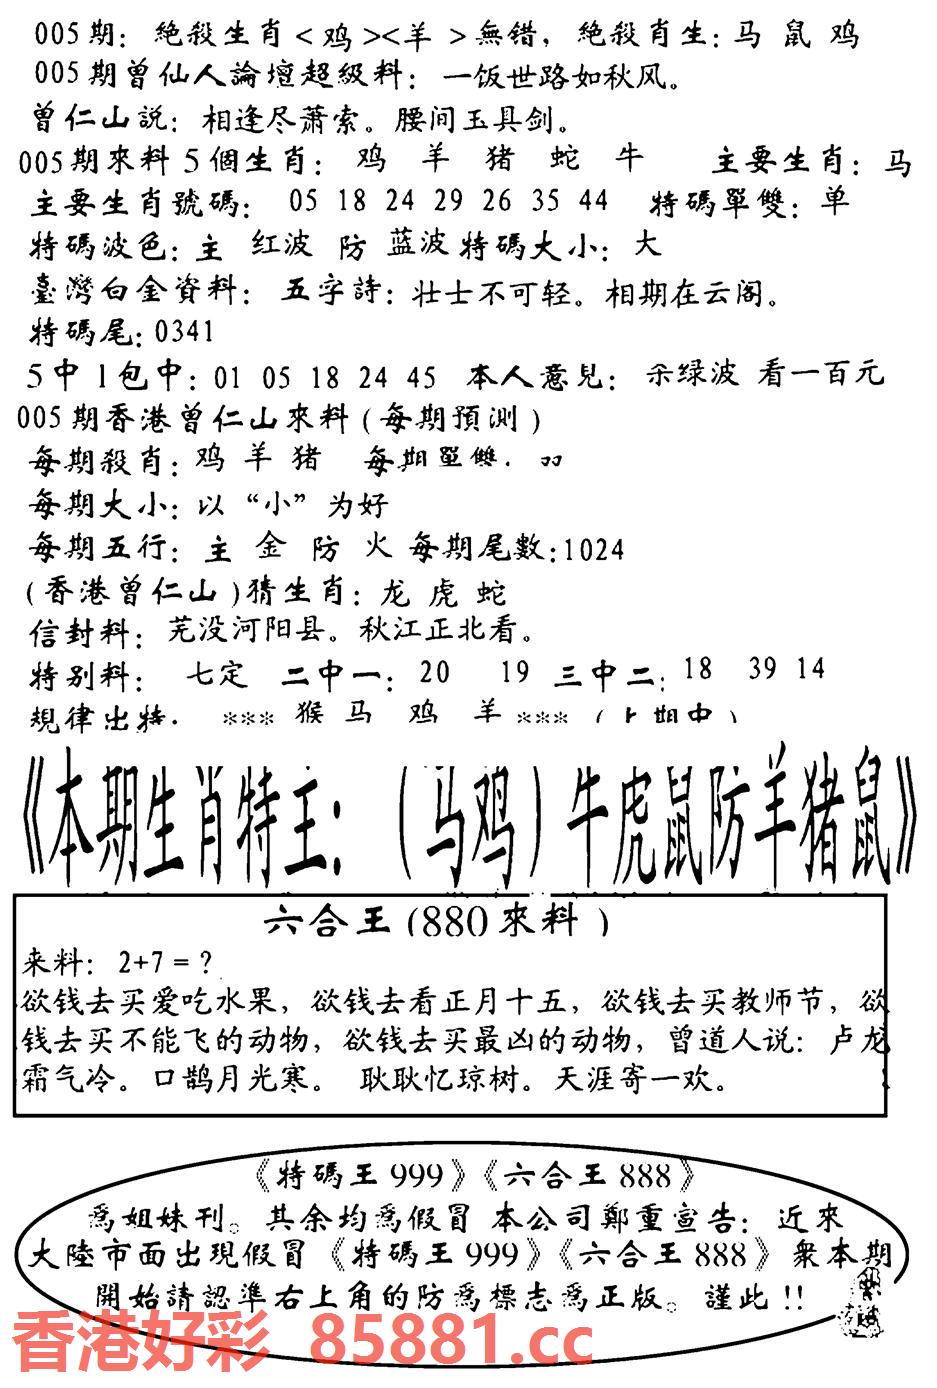 005期：絶殺生肖<鸡><羊>無错，絶殺肖生：马 鼠 鸡
005期曾仙人論壇超級料：一饭世路如秋风。
曾仁山説：相逢尽萧索。腰间玉具剑。
005期來料5個生肖：鸡 羊 猪 蛇 牛 主要生肖：马
主要生肖號碼：05 18 24 29 26 35 44 特碼單雙：单
特碼波色：主 红波 防 蓝波 特碼大小：大
臺灣白金資料：五字詩：壮士不可轻。相期在云阁。
特碼尾：0341
5中1包中：01 05 18 24 45 本人意見：买绿波 看一百元
005期香港曾仁山來料（每期預測）
每期殺肖：鸡 羊 猪 每期單雙：双
每期大小：以“小”为好
每期五行：主 金 防 火 每期尾數：1024
（香港曾仁山）猜生肖：龙 虎 蛇
信封料：芜没河阳县。秋江正北看。
特别料：七定 二中一：20 19 三中二：18 39 14
規律出特：*** 猴 马 鸡 羊 ***（上期中）
《本期生肖特王：（马鸡）牛虎鼠防羊猪鼠》
六合王（880來料）
来料：2+7=？
欲钱去买爱吃水果，欲钱去看正月十五，欲钱去买教师节，欲
钱去买不能飞的动物，欲钱去买最凶的动物，曾道人说：卢龙
霜气冷。口鹊月光寒。 耿耿忆琼树。天涯寄一欢。
《特碼王999》《六合王888》
爲姐妹刊。其余均爲假冒 本公司鄭重宣告：近來
大陸市面出現假冒《特碼王999》《六合王888》衆本期
開始請認準右上角的防爲標志爲正版。謹此!!
香港好彩 85881.cc